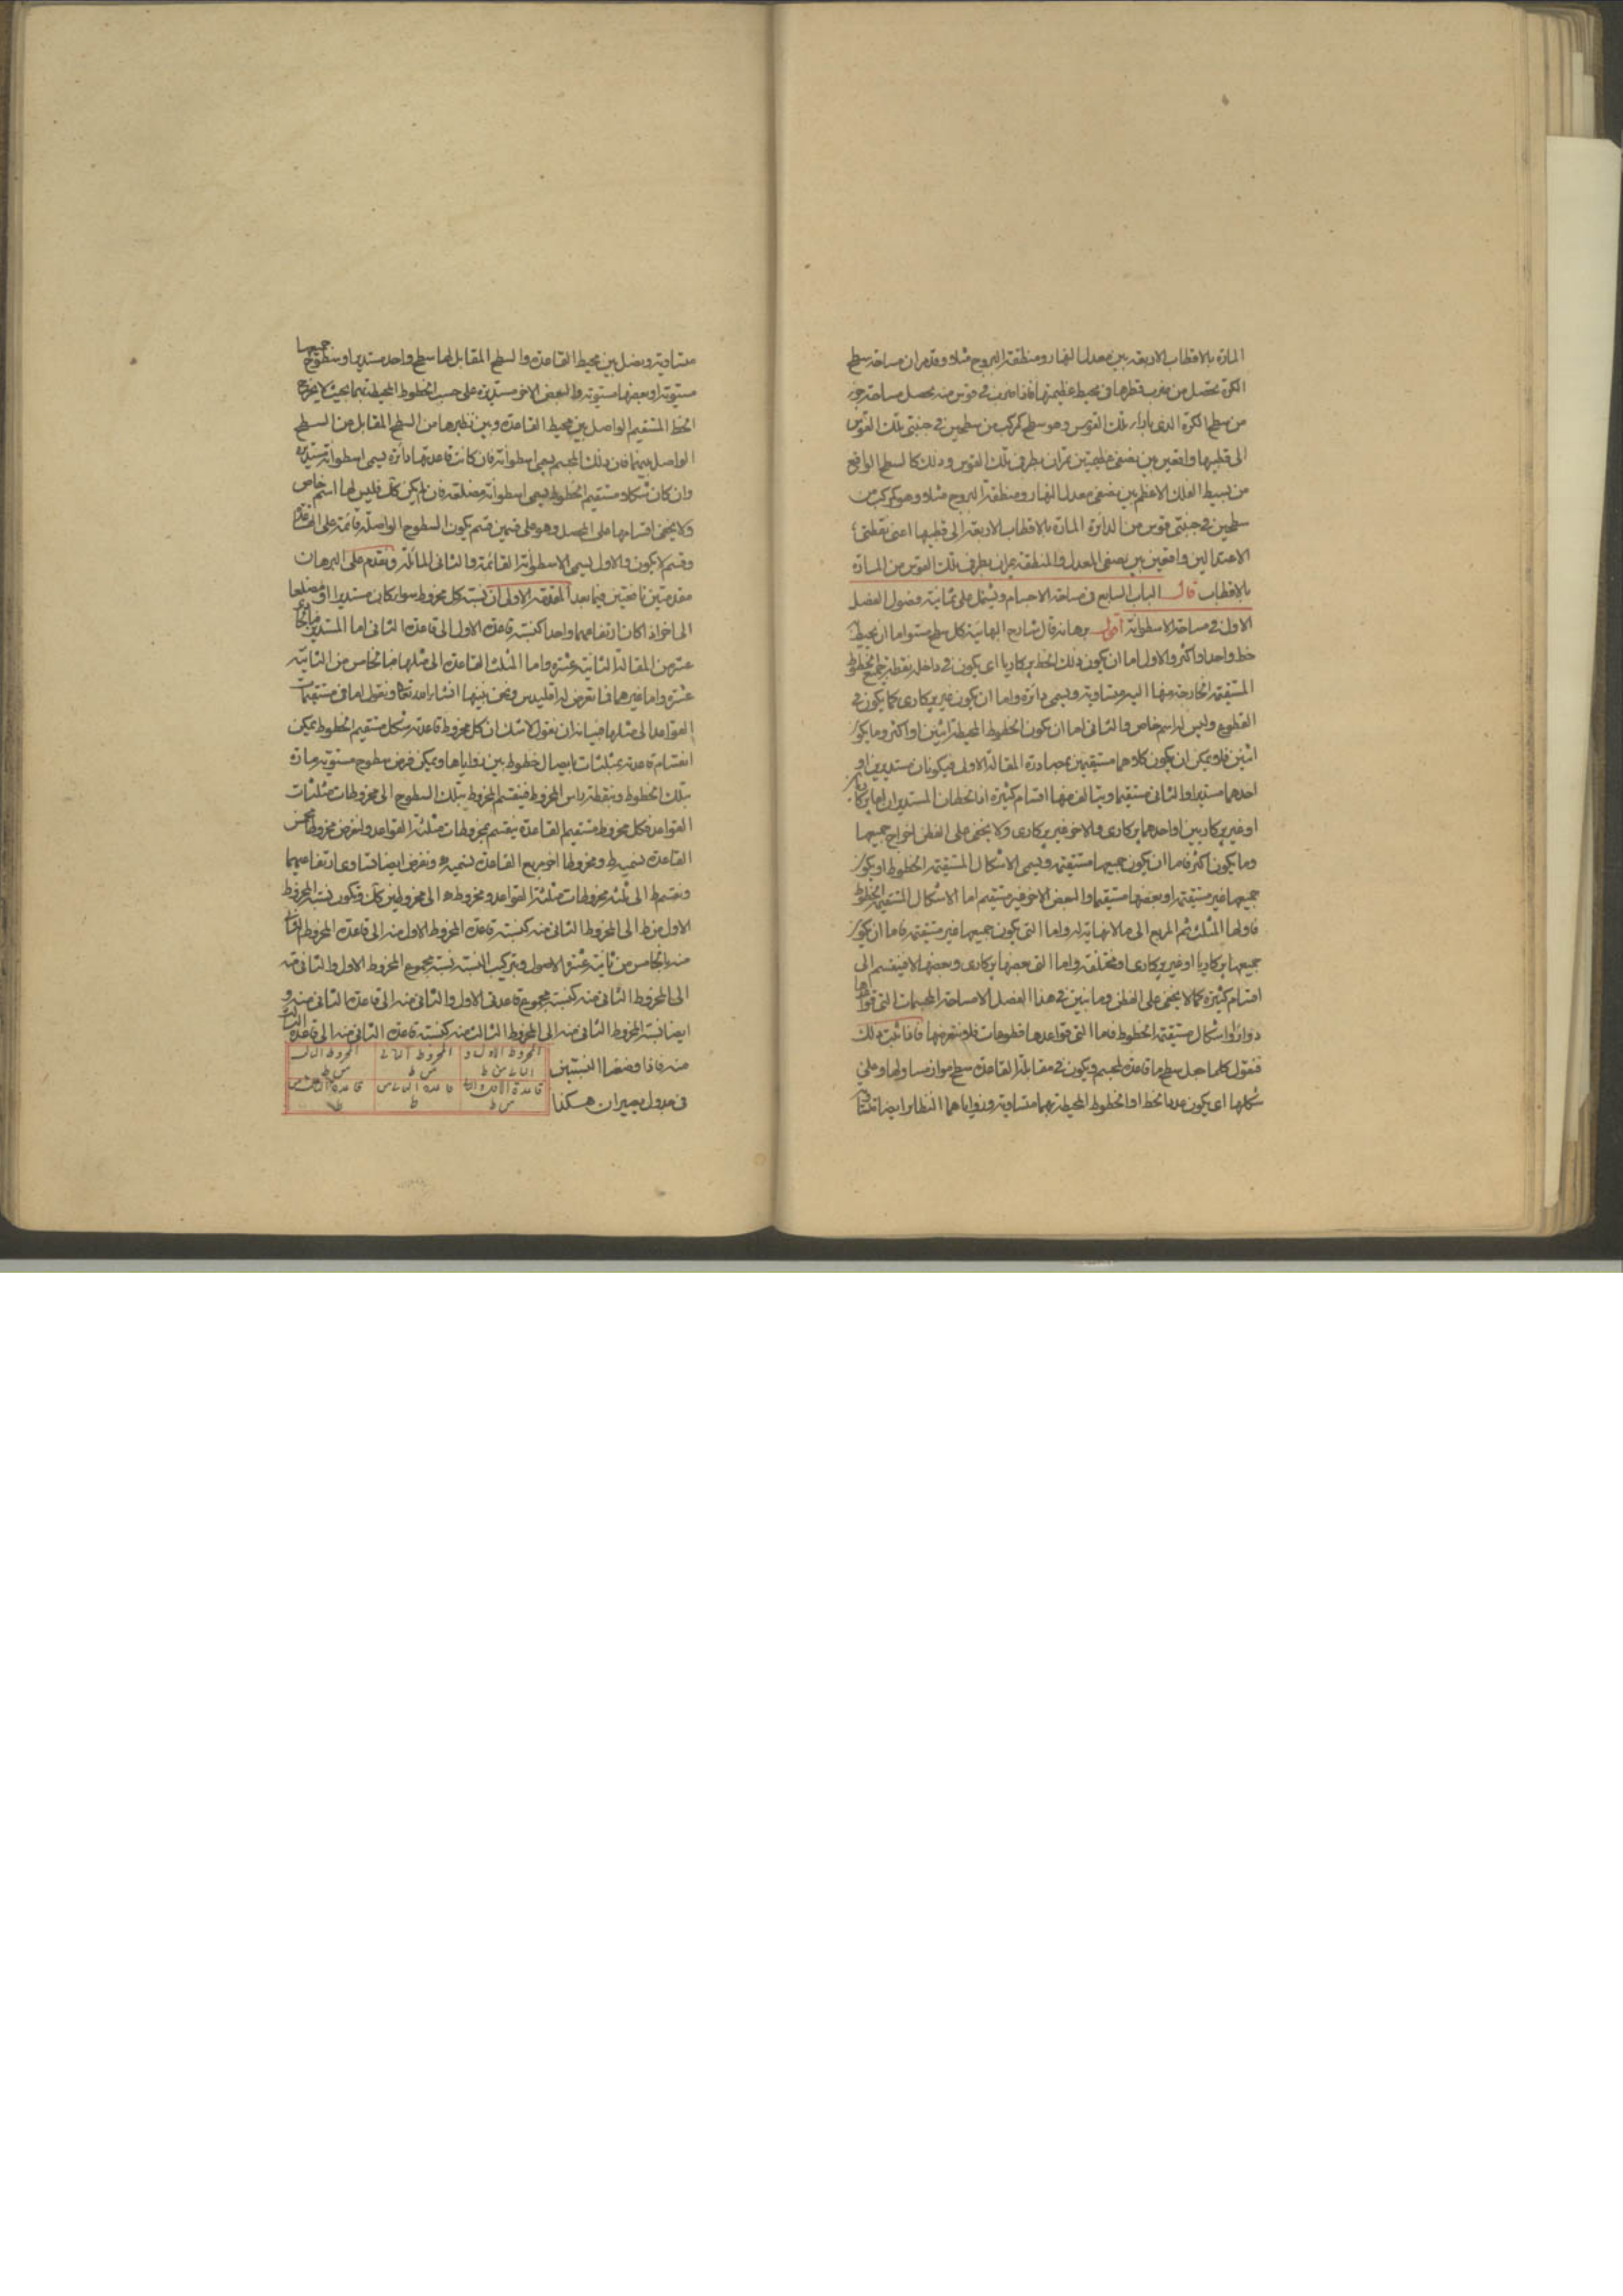 المارة بالاقطاب الاربعة بين معدل النهار ومنطقة البروج مثلا وقد مر ان مساحة سطح
الكرة يحصل من ضرب قطرها فى محيط عظيمتها فاذا ضرب فى قوس منه يحصل مساحة جزء
من سطح الكرة الذى بازاء تلك القوس وهو سطح مركب من سطحين فى جنبتى تلك القوس
الى قطبيها واقعين بين نصفى عظيمتين تمران بطرفى تلك القوس وذلك كالسطح الواقع
من بسيط الفلك الاعظم بين نصفى معدل النهار ومنطقة البروج مثلا وهو مركب من
سطحين فى جنبتى قوس من الدائرة المارة بالاقطاب الاربعة الى قطبيها اعنى نقطتى
الاعتدالين واقعين بين نصفى المعدل والمنطقة يمران بطرفى تلك القوس من المارة
بالاقطاب قال الباب السابع فى مساحة الاجسام ويشتمل على ثمانية فصول الفصل
الاول فى مساحة الاسطوانة اقول برهانه قال شارح البهائية كل سطح مستو اما ان يحيط به
خط واحد او اكثر والاول اما ان يكون ذلك الخط بركاريا اى يكون فى داخله نقطة جميع الخطوط
المستقيمة الخارجة منها اليه متساوية ويسمى دائرة واما ان يكون غير بركارى كما يكون فى
القطوع وليس له اسم خاص والثانى اما ان يكون الخطوط المحيطة اثنين او اكثر وما يكون
اثنين فلا يمكن ان يكون كلاهما مستقيمين بمصادرة المقالة الاولى فيكونان مستديرين او
احدهما مستديرا والثانى مستقيما ويتالف منها اقسام كثيرة اذ الخطان المستديران اما بركاريان
او غير بركاريين او احدهما بركارى والاخر غير بركارى ولا يخفى على الفطن اخراج جميعها
وما يكون اكثر فاما ان يكون جميعها مستقيمة ويسمى الاشكال المستقيمة الخطوط او يكون
جميعها غير مستقيمة او بعضها مستقيما والبعض الاخر غير مستقيم اما الاشكال المستقيمة الخطوط
فاولها المثلث ثم المربع الى ما لا نهاية له واما التى يكون جميعها غير مستقيمة فاما ان يكون
جميعها بركاريا او غير بركارى او مختلفة واما التى بعضها بركارى وبعضها لا فينقسم الى
اقسام كثيرة كما لا يخفى على الفطن وما نبين فى هذا الفصل الا مساحة المجسمات التى قواعدها
دوائر او اشكال مستقيمة الخطوط فاما التى قواعدها قطوعات فلا نتعرضها فاذا ثبت ذلك
فنقول كلما جعل سطح ما قاعدة لمجسم ويكون فى مقابلة القاعدة سطح مواز مساو لها وعلى
شكلها اى يكون عدد الخط او الخطوط المحيطة بهما متساوية وزواياهما النظائر ايضا
متساوية ويصل بين محيط القاعدة والسطح المقابل لها سطح واحد مستدير او سطوح جميعها
مستوية او بعضها مستوية والبعض الاخر مستديرة على حسب الخطوط المحيطة بهما بحيث لا يخرج
الخط المستقيم الواصل بين محيط القاعدة وبين نظيرها من السطح المقابل من السطح
الواصل بينهما فان ذلك المجسم يسمى اسطوانة فان كانت قاعدتها دائرة يسمى اسطوانة مستديرة
وان كان شكلا مستقيم الخطوط يسمى اسطوانة مضلعة فان لم يكن كك فليس لها اسم خاص
ولا يخفى اقسامها على المحصل وهو على قسمين قسم يكون السطوح الواصلة قائمة على القاعدة
وقسم لا يكون والاول يسمى الاسطوانة القائمة والثانى المائلة ونقدم على البرهان
مقدمتين نافعتين فيما بعد المقدمة الاولى ان نسبة كل مخروط سواء كان مستديرا او مضلعا
الى اخر اذا كان ارتفاعهما واحدا كنسبة قاعدة الاول الى قاعدة الثانى اما المستدير
عشر من المقالة الثانية عشرة واما المثلث القاعدة الى مثلها فبالخامس من الثانية
عشرة واما غيرهما فما تعرض له اقليدس ونحن نبينها انشاء الله تعالى ونقول اما فى مستقيمات
القواعد الى مثلها فبيانه ان نقول لا شك ان كل مخروط قاعدته شكل مستقيم الخطوط يمكن
انقسام قاعدته بمثلثات بايصال خطوط بين زواياها ويمكن فرض سطوح مستوية مارة
بتلك الخطوط وبنقطة راس المخروط فينقسم المخروط بتلك السطوح الى مخروطات مثلثات
القواعد فكل مخروط مستقيم القاعدة ينقسم بمخروطات مثلثة القواعد ولنفرض مخروطا مخمس
القاعدة نسميه ط ومخروطا اخر مربع القاعدة نسميه ه ونفرض ايضا تساوى ارتفاعيهما
ونقسم ط الى ثلثه مخروطات مثلثة القواعد ومخروط ه الى مخروطين كك فيكون نسبة المخروط
الاول من ط الى المخروط الثانى منه كنسبة قاعدة المخروط الاول منه الى قاعدة المخروط الثانى
منه بالخامس من ثانية عشر الاصول وبتركيب النسبة نسبة مجموع المخروط الاول والثانى منه
الى المخروط الثانى منه كنسبة مجموع قاعدتى الاول والثانى منه الى قاعدة الثانى منه و
ايضا نسبة المخروط الثانى منه الى المخروط الثالث منه كنسبة قاعدة الثانى منه الى قاعدة الثالث
منه فاذا وضعنا النسبتين
فى جدول يصيران هكذا
المخروط الاول و الثانى من ط
المخروط الثانى من ط
المخروط الثالث من ط
قاعدة الاول والثانى من ط
قاعدة الثانى من ط
قاعدة الثالث من ط